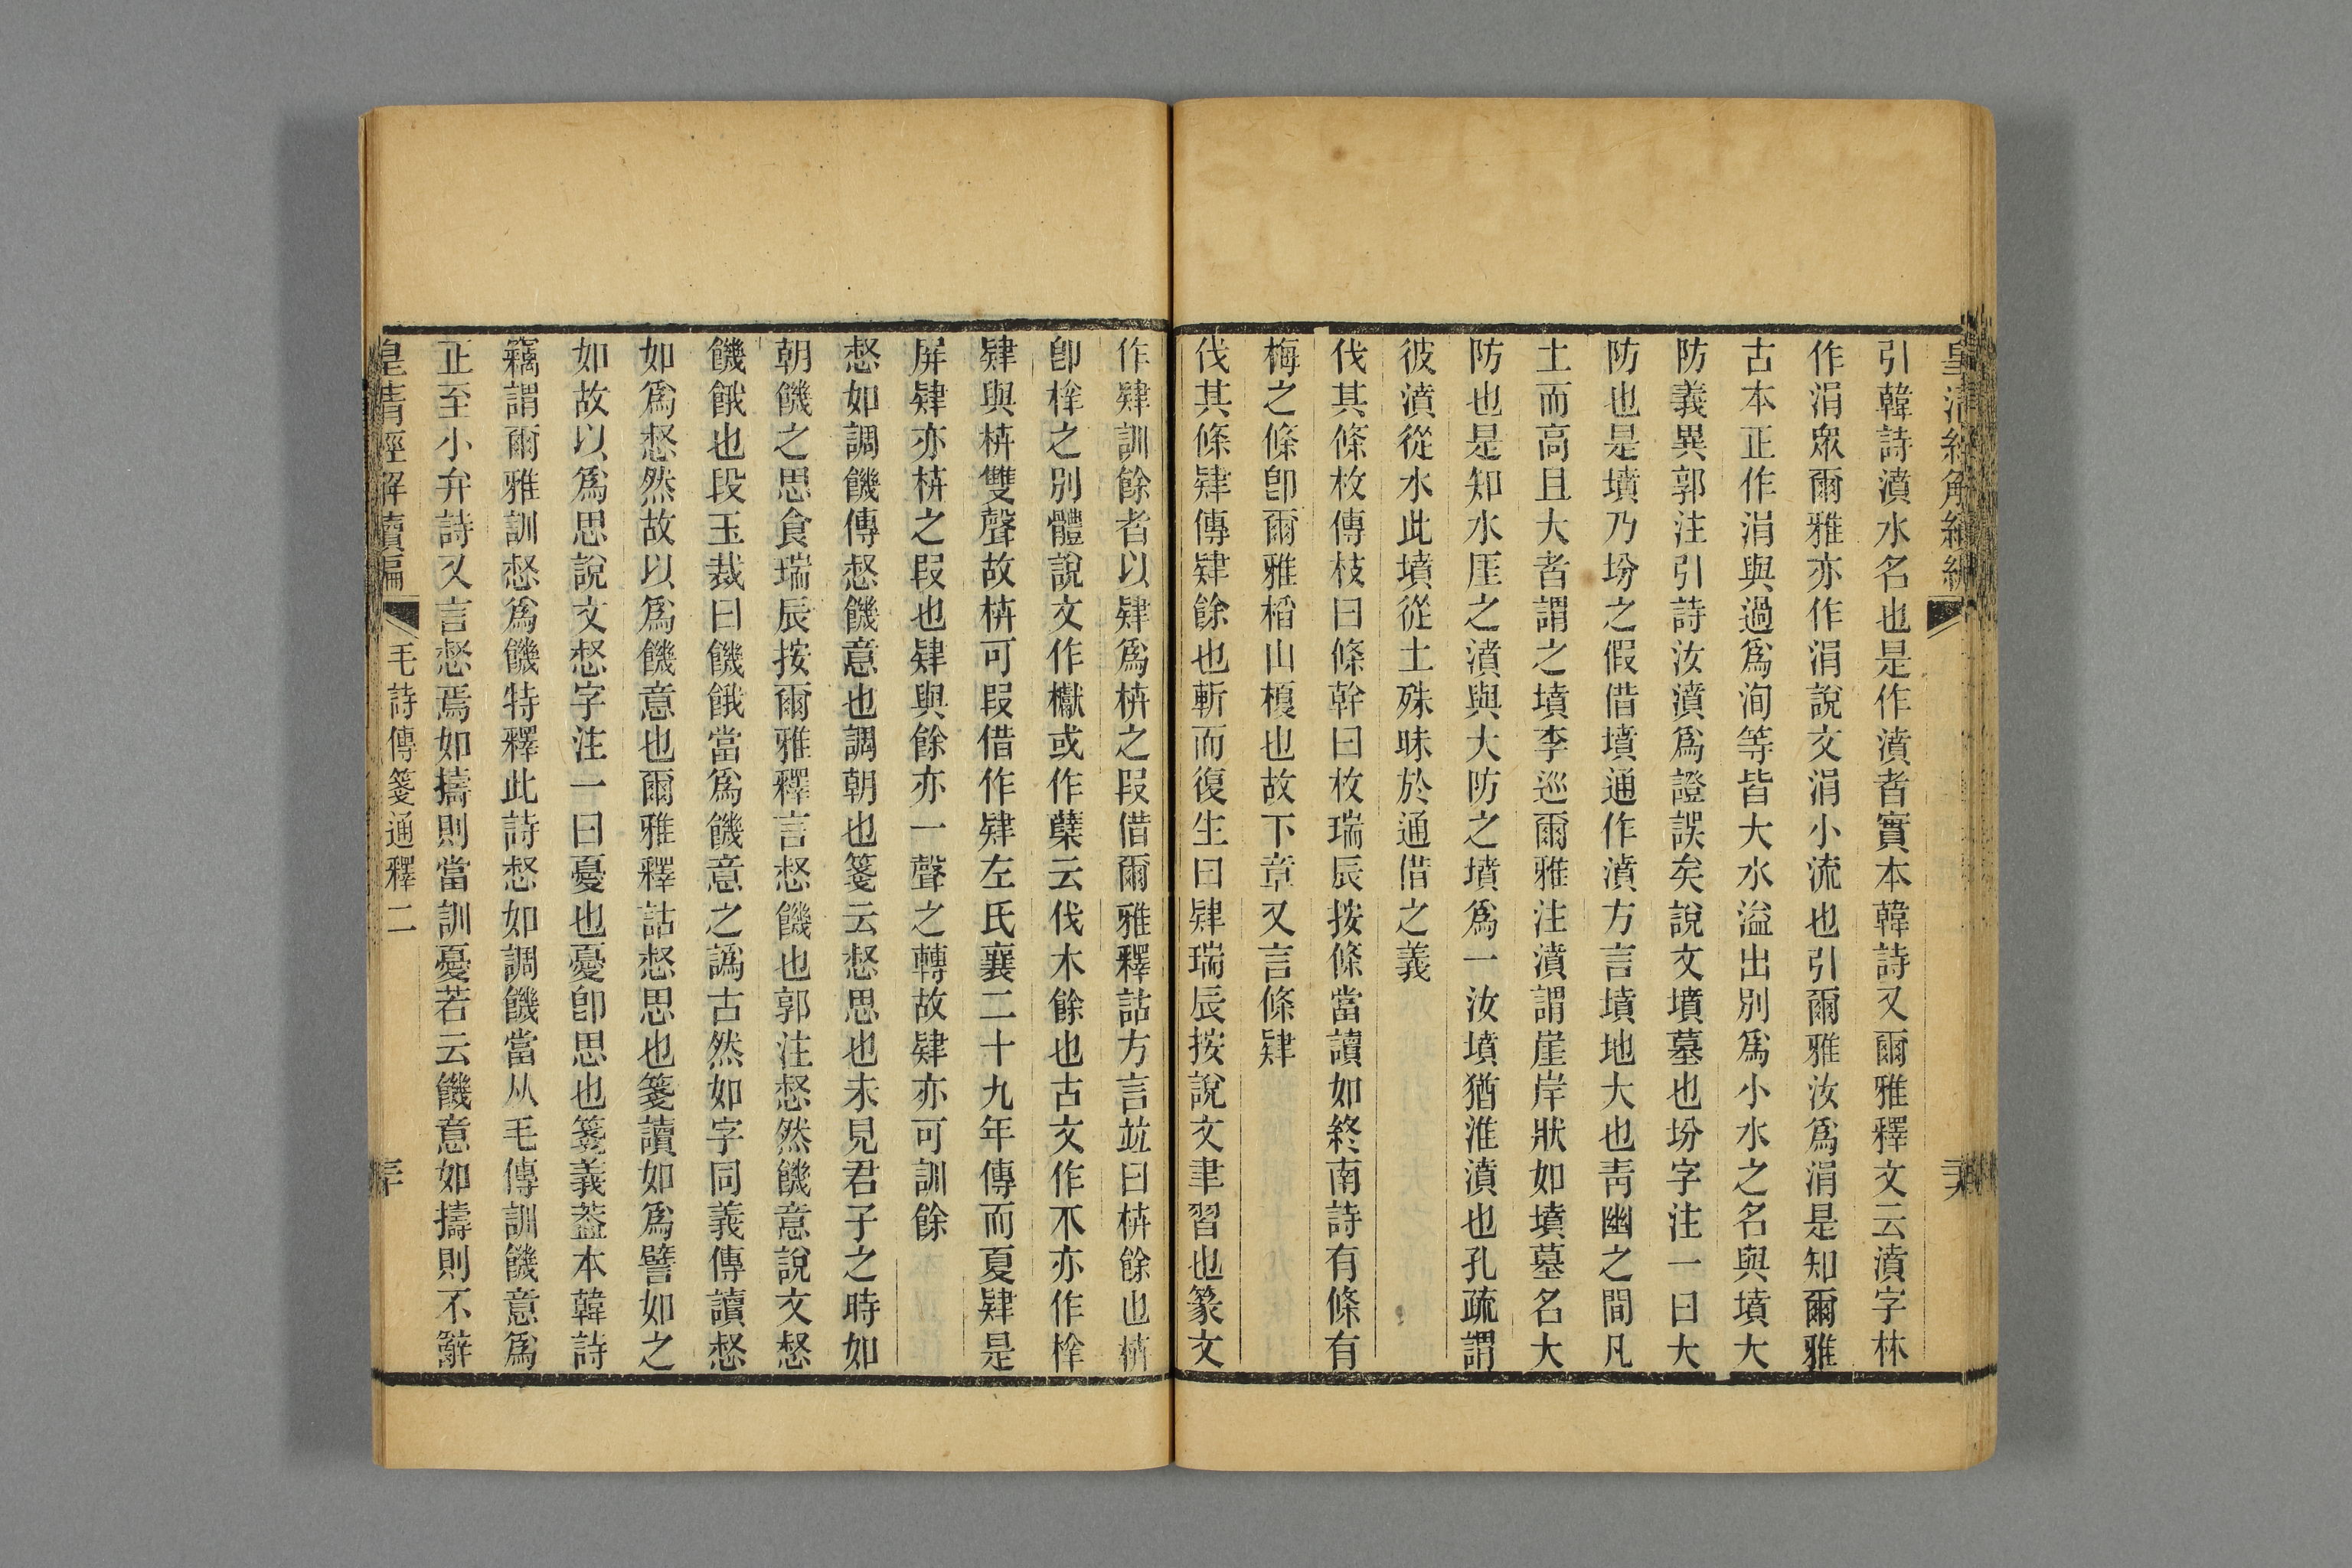 皇清經解續編
引韓詩濆水名也是作濆者實本韓詩又爾雅釋文云濆字林
作涓眾爾雅亦作涓說文涓小流也引爾雅汝爲涓是知爾雅
古本正作涓與過爲洵等皆大水溢出別爲小水之名與墳大
防義異郭注引詩汝濆爲證誤矣說文墳墓也坋字注一曰大
防也是墳乃坋之假借墳通作濆方言墳地大也靑幽之間凡
土而高且大者謂之墳李巡爾雅注濆謂崖岸狀如墳墓名大
防也是知水厓之濆與大防之墳爲一汝墳猶淮濆也孔疏謂
彼濆從水此墳從土殊昧於通借之義
伐其條枚傳枝曰條幹曰枚瑞辰按條當讀如終南詩有條有
梅之條卽爾雅槄山榎也故下章又言條肄
伐其條肄傳肄餘也斬而復生曰肄瑞辰按說文肀習也篆文
作肄訓餘者以肄爲枿之叚借爾雅釋詁方言竝曰枿餘也枿
卽櫱之別體說文作櫱或作蘖云伐木餘也古文作不亦作栓
肄與枿雙聲故枿可叚借作肄左氏襄二十九年傳而夏肄是
屏肄亦枿之叚也肄與餘亦一聲之轉故肄亦可訓餘
惄如調饑傳惄饑意也調朝也箋云惄思也未見君子之時如
朝饑之思食瑞辰按爾雅釋言惄饑也郭注惄然饑意說文惄
饑餓也段玉裁曰饑餓當爲饑意之譌古然如字同義傳讀惄
如爲惄然故以爲饑意也爾雅釋詁惄思也箋讀如爲譬如之
如故以爲思說文惄字注一曰憂也憂卽思也箋義葢本韓詩
竊謂爾雅訓惄爲饑特釋此詩惄如調饑當从毛傳訓饑意爲
正至小弁詩又言惄焉如擣則當訓憂若云饑意如擣則不辭
皇清經解續編
毛詩傳箋通釋二